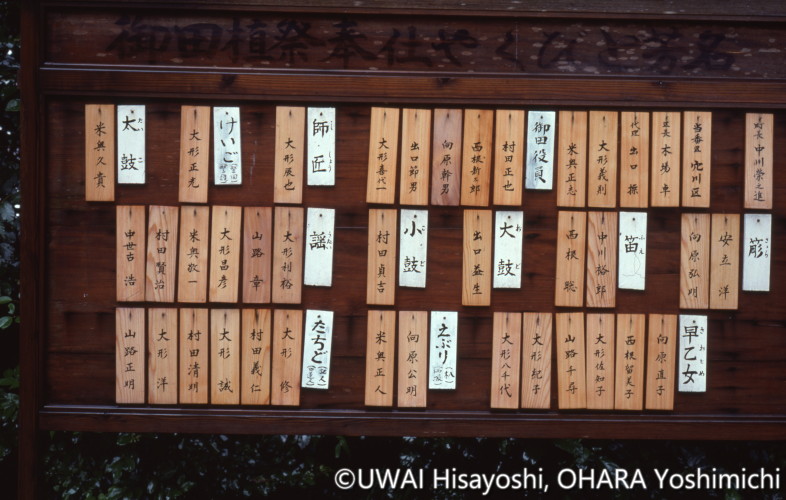 御田植祭奉仕やくびと芳名
町長 中川榮之進
当番区 沖川区
区長 木場 車
代理 出口 操
大形義則
米奥正志
御田役員
村田正也
西根新郎
向原幹男
出口節男
大形喜代一
師匠 ししょう
大形辰也
けいご
大形正光
太鼓 たいこ
米奥久貴
簓 ささら
安立 洋
向原弘明
笛 ふえ
中川裕郎
西根 聡
大鼓 おおど
出口益生
小鼓 こど
村田貞吉
謡 うたい
大形利裕
山路 幸
大形昌彦
米奥敬一
村田賢治
中世古 浩
早乙女 さおとめ
向原直子
西根留美子
大形佐知子
山路千尋
大形紀子
大形八千代
えぶり
向原公明
米奥正人
たちど
大形 修
村田義仁
大形 誠
村田清明
大形 洋
山路正明
©UWAI Hisayoshi, OHARA Yoshimichi